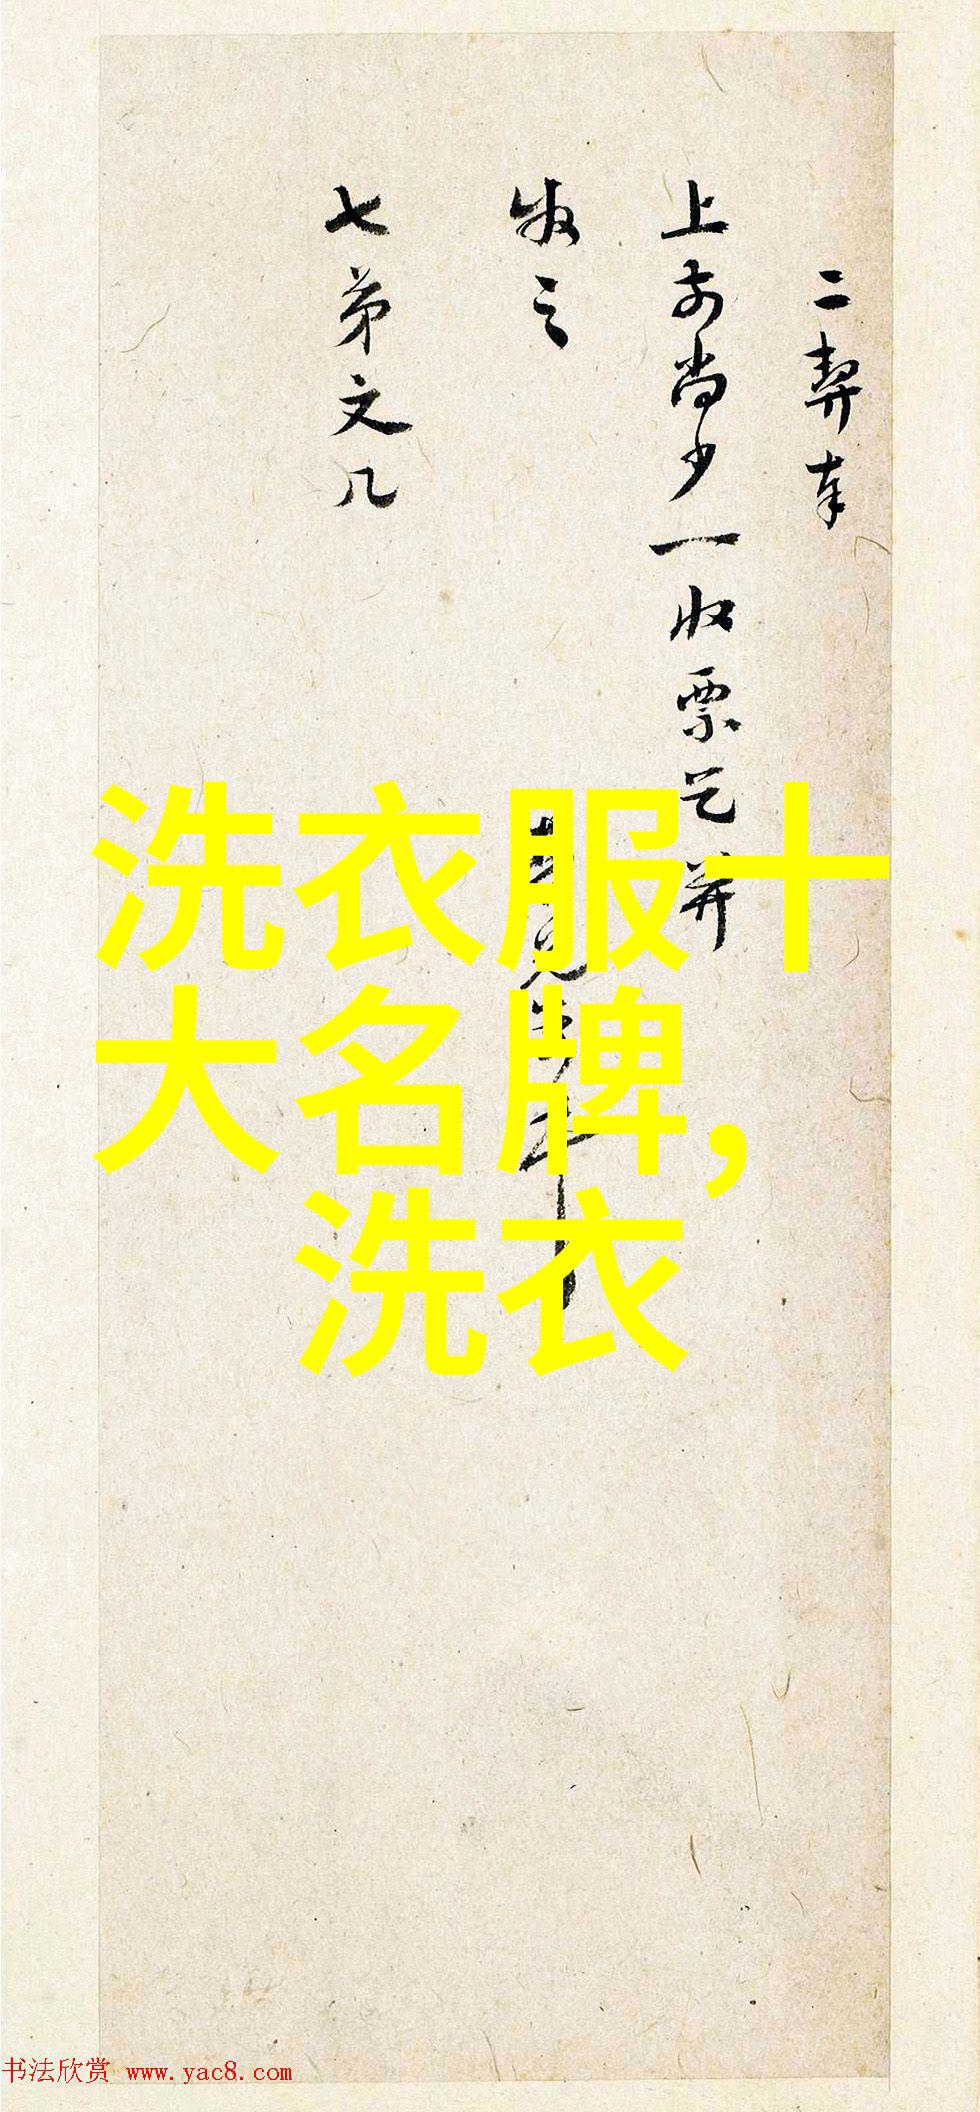 二契奉
上前尚少一收票乞并
发之
七弟文几
洗衣服十
大名牌,
洗衣
书法欣赏 www.yac8.com